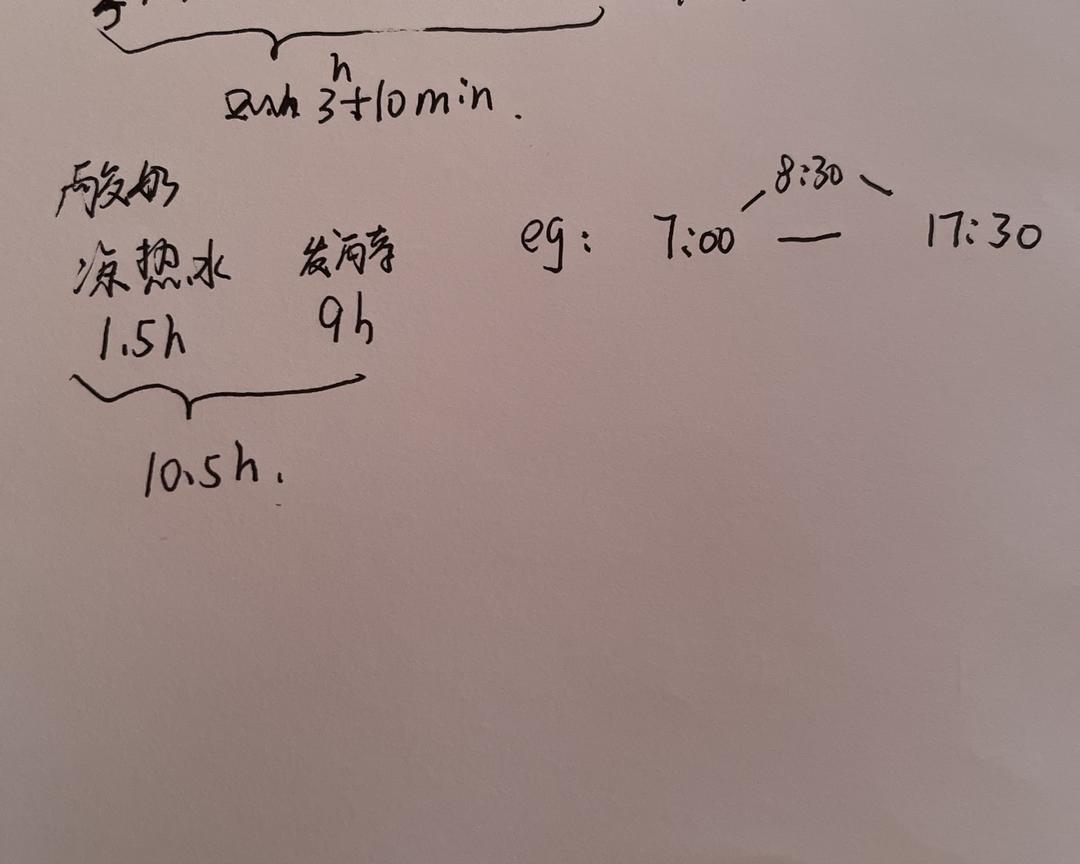 3h+10min.
酸奶
凉热水 发酵
1.5h 9h
10.5h.
eg: 7:00 — 8:30 — 17:30